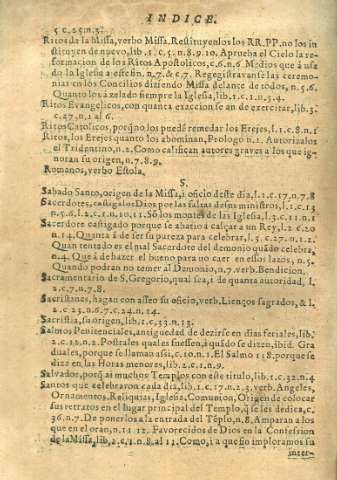 INDICE.
5 c.25.n.3.
Ritos de la Missa, verbo Missa. Restituyenlos los RR. PP. no los in
stituyen de nuevo, lib. 1. c. 5. n. 8. 9. 10. Aprueba el Cielo la re-
formacion de los Ritos Apostolicos, c. 6. n. 6. Medios que à usa-
do la Iglesia a este fin. n. 7. & c. 7. Regegistravanse las ceremo-
nias en los Concilios diziendo Missa delante de todos, n. 5. 6.
Quanto los à zelado siempre la Iglesia, lib. 1. c. 1. n. 5. 4.
Ritos Evangelicos, con quanta exaccion se an de exercitar, lib. 3.
c. 27. n. 1. al 6.
Ritos Catolicos, porq̃ no los puedẽ remedar los Erejes, l. 1. c. 8. n. 1
Ritos, los Erejes quanto los abominan, Prologo n. 1. Autorizalos
el Tridentino, n. 2. Como califican autores graves a los que ig-
noran su origen, n. 7. 8. 9.
Romanos, verbo Estola.
S.
Sabado Santo, origen de la Missa, i oficio deste dia, l. 1. c. 17. n. 7. 8
Sacerdotes, castigalos Dios por las faltas de sus ministros, l. 1. c. 13
n. 5. 6. l. 2. c. 1. n. 10. 11. Sõ los montes de las Iglesia, l. 3. c. 11. n. 1
Sacerdore castigado porque se abatio à calçar a un Rey, l. 2. c. 20
n. 14. Quanta à de ser su pureza para celebrar, l. 5. c. 27. n. 1. 2.
Quan tentado es el mal Sacerdore del demonio quãdo celebra,
n. 4. Que à de hazer el bueno para no caer en essos lazos, n. 5.
Quando podran no temer al Demonio, n. 7. verb. Bendicion.
Sacramentario de S. Gregorio, qual sea, i de quanta autoridad, l.
2. c. 7. n. 7. 8.
Sacristanes, hagan con asseo su oficio, verb. Lienços sagrados, & l.
2. c. 23. n. 6. 7. c. 24. n. 14.
Sacristia, su origen, lib. 1. c. 33. n. 13.
Salmos Penitenciales, antiguedad de dezirse en dias feriales, lib.
2. c. 12. n. 2. Postrales quales fuessen, i quãdo se dizen, ibid. Gra
duales, porque se llaman assi, c. 10. n. 1. El Salmo 118. porque se
dize en las Horas menores, lib. 2. c. 1. n. 9.
Salvador, porq̃ ai muchos Templos con este titulo, lib. 1. c. 32. n. 4
Santos que celebraron cada dia, lib. 1. c. 17. n. 2. 3. verb. Angeles,
Ornamentos, Reliquias, Iglesia, Comunion, Origen de colocar
sus retratos en el lugar principal del Templo, q̃ se les dedica, c.
36. n. 7. De ponerlos a la entrada del Tẽplo, n. 8. Amparan a los
que en el oran, n. 11. 12. Favorecidos de Dios en la Confession
de la Missa, lib. 2. c. 1. n. 8. al 11. Como, i a que fin imploramos su
inter-